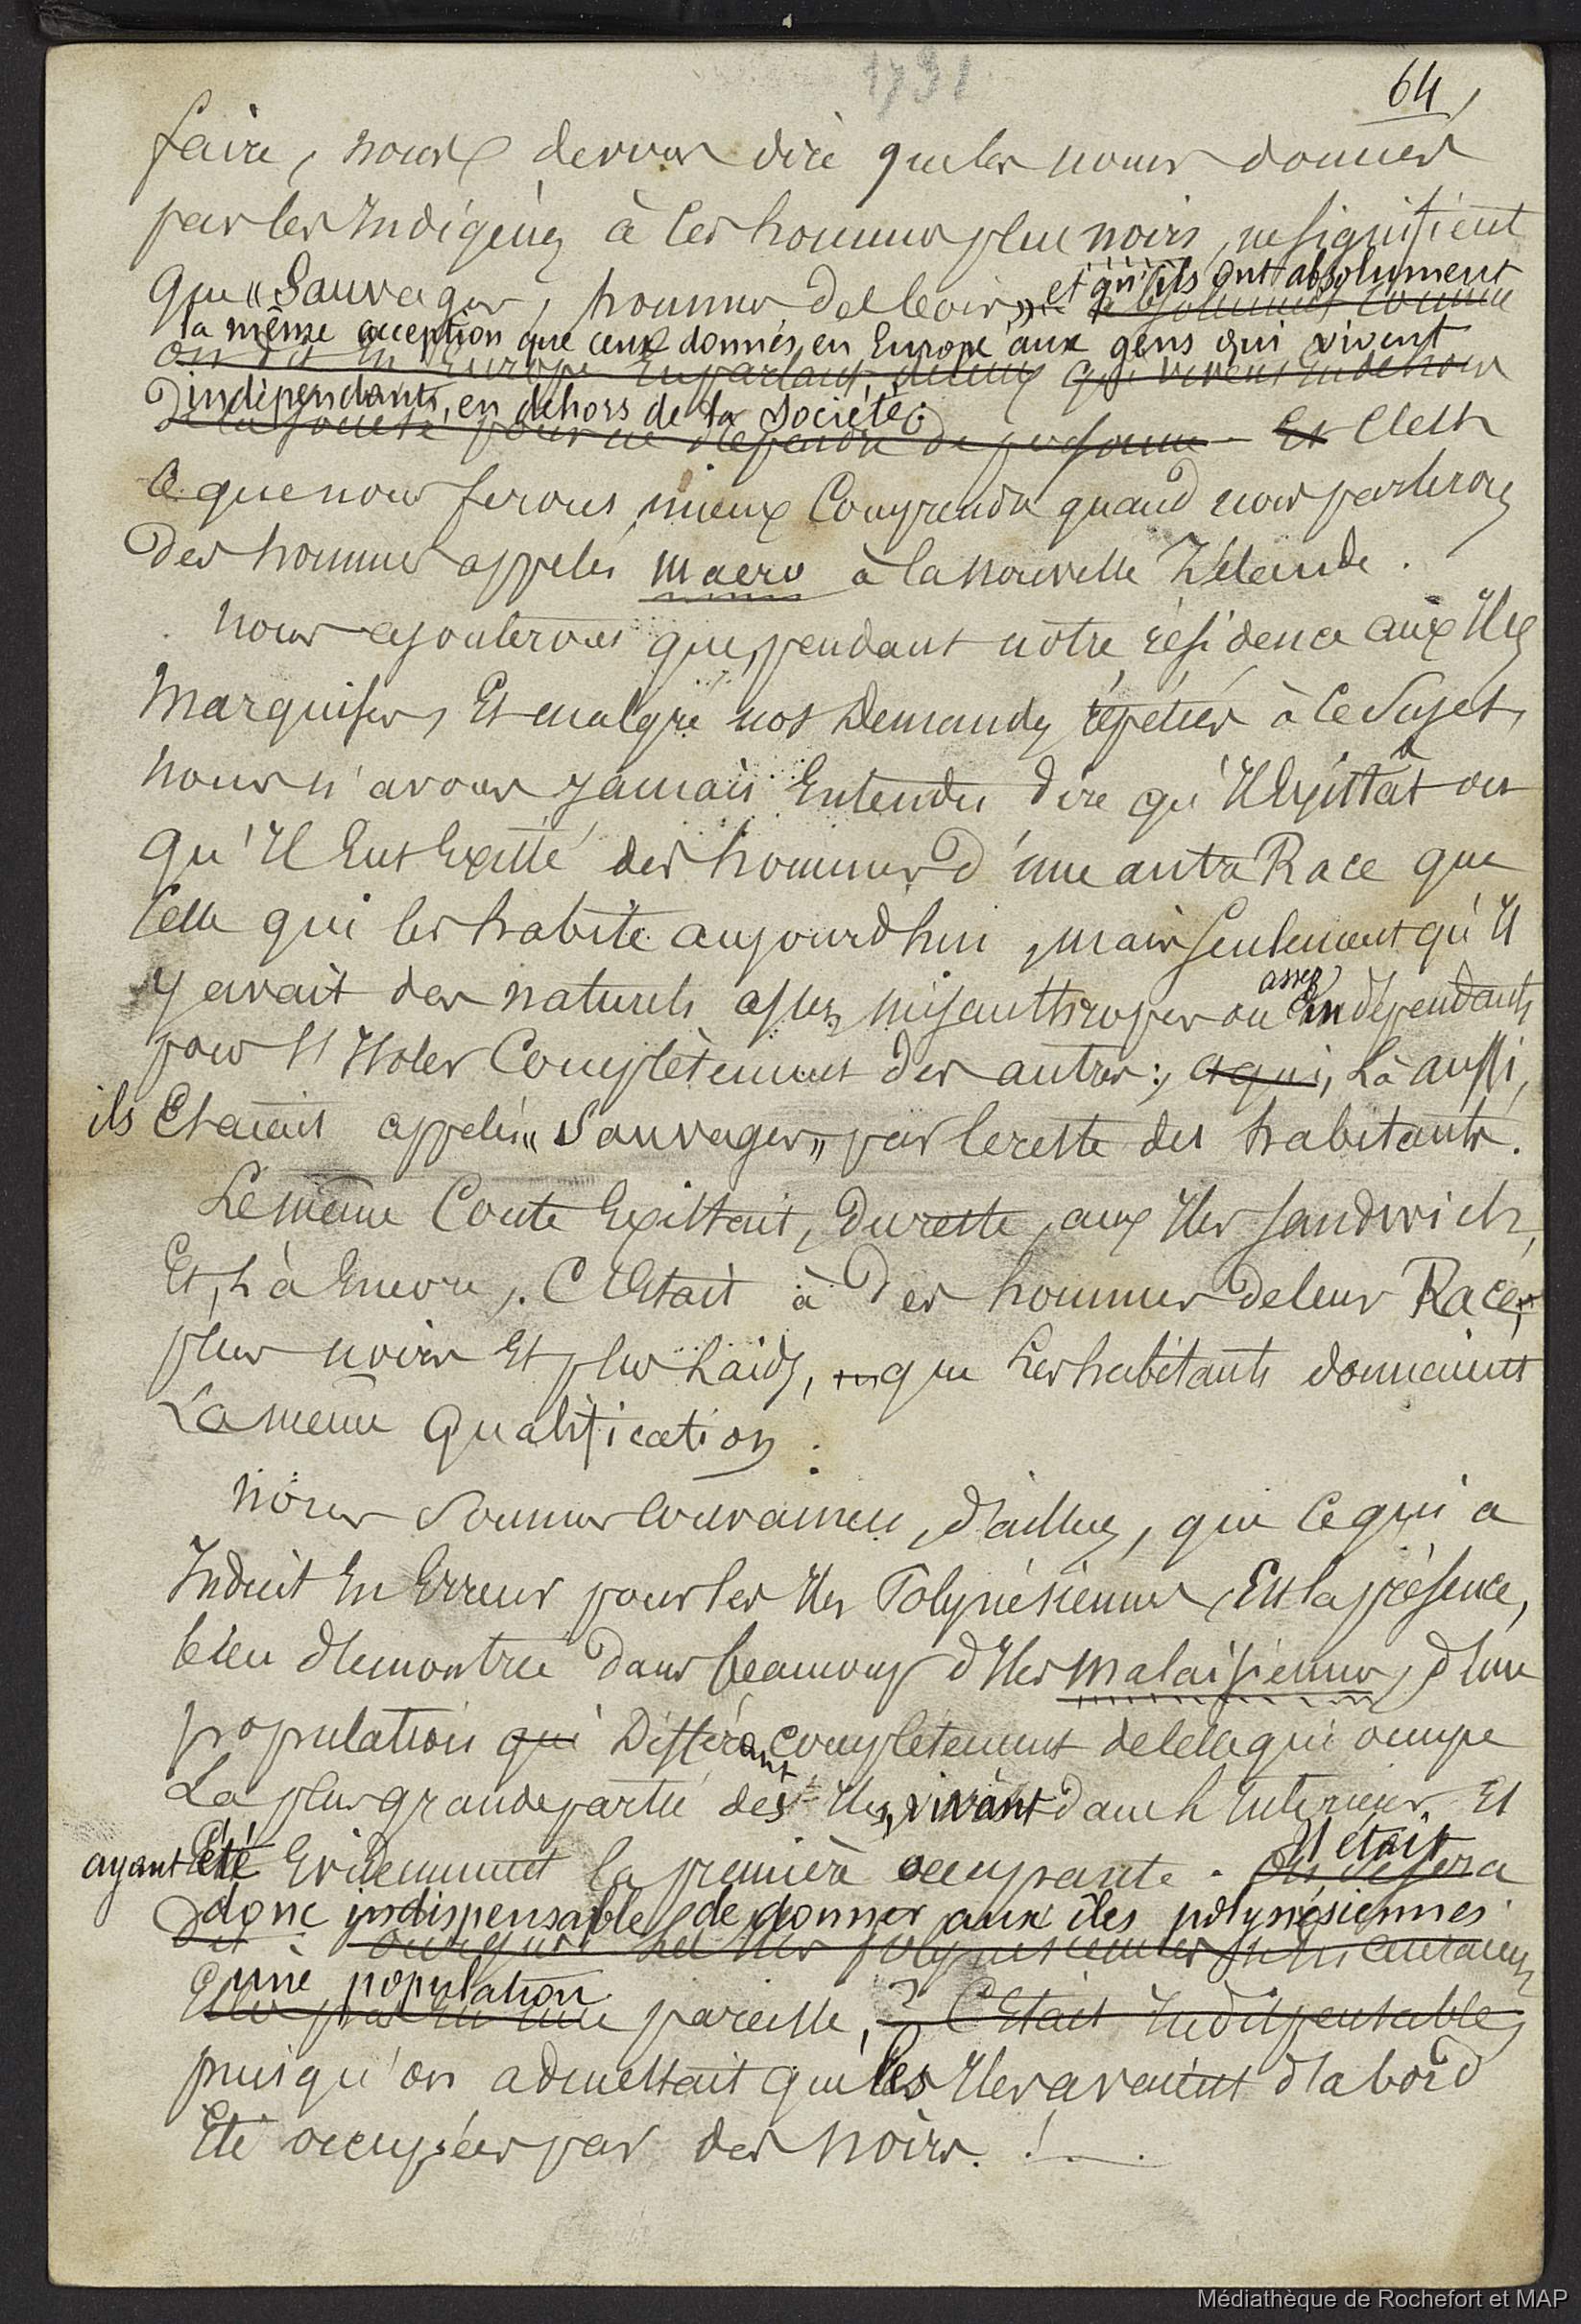 1791
64
faire, nous devons dire que les noms donnés
par les Indigènes à ces hommes plus noirs, ne signifient
que « Sauvages, hommes des bois » et qu'ils ont absolument
absolument comme
la même acception que ceux donnés, en Europe aux gens qui vivent
on dit en Europe en parlant de ceux qui vivent en dehors
indépendants, en dehors de la Société;
de la société pour ne dépendre de personne - Et C'est
ce que nous ferons mieux comprendre quand nous parlerons
des hommes appelés maero à la Nouvelle Zélande.
Nous ajouterons que, pendant notre résidence aux Iles
Marquises, Et malgré nos demandes répétées à ce Sujet,
nous n'avons jamais Entendu dire qu'Il existât ou
qu'Il Eut Existé des hommes d'une autre Race que
celle qui les habite aujourd'hui, mais seulement qu'Il
y avait des naturels assez misanthropes ou assez indépendants
pour s'Isoler Complètement des autres; et qui, Là aussi,
ils Etaient appelés « Sauvages » par le reste des habitants.
Le même Conte Existait, du reste, aux Iles Sandwich,
Et, Là Encore, C'Etait à des hommes de leur Race,
plus noirs Et plus Laids, que Les habitants donnaient
La même Qualification.
Nous Sommes Convaincu, d'ailleurs, que ce qui a
Induit En Erreur pour les Iles Polynésiennes, Est la présence,
bien démontrée dans beaucoup d'Iles malaisiennes, d'une
population qui différant complètement de celle qui occupe
La plus grande partie des Iles, vivant dans l'Intérieur, Et
ayant été Evidemment la première occupante. Il était
On s'est
donc indispensable de donner aux îles polynésiennes
Dit : pourquoi les Iles polynésiennes n'en auraient
une population
Elles pas eu une pareille, ? C'Etait Indispensable,
puisqu'on admettait que les Iles avaient d'abord
Eté occupées par des noirs. !
Médiathèque de Rochefort et MAP